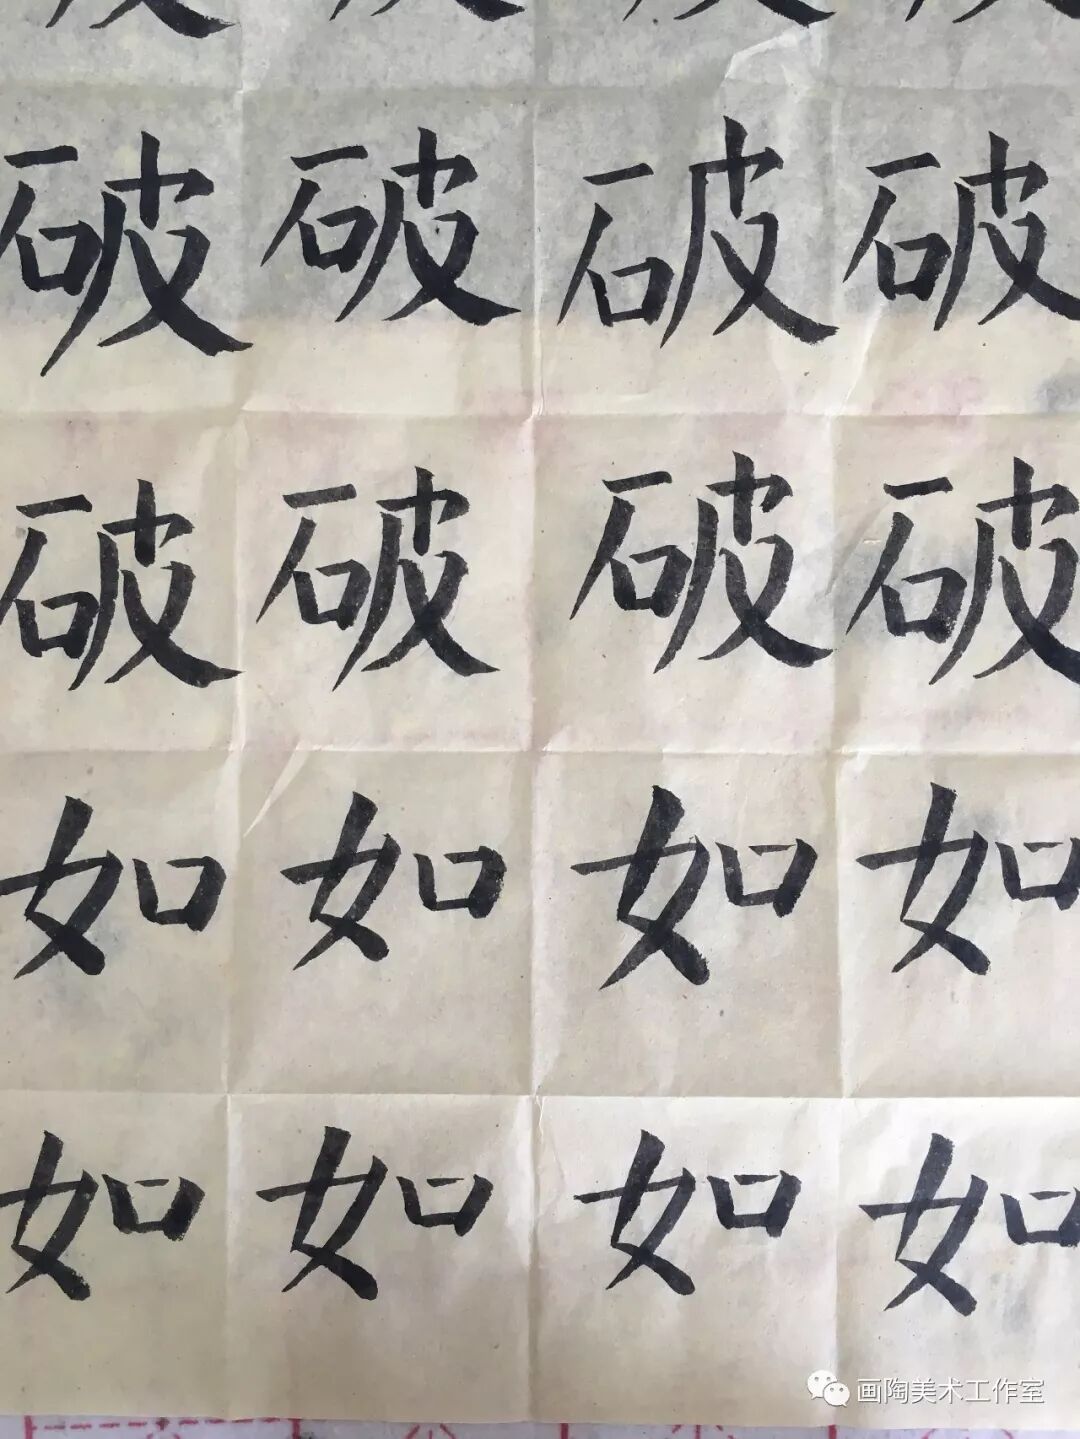 破破破破
破破破破
如如如如
如如如如
画陶美术工作室